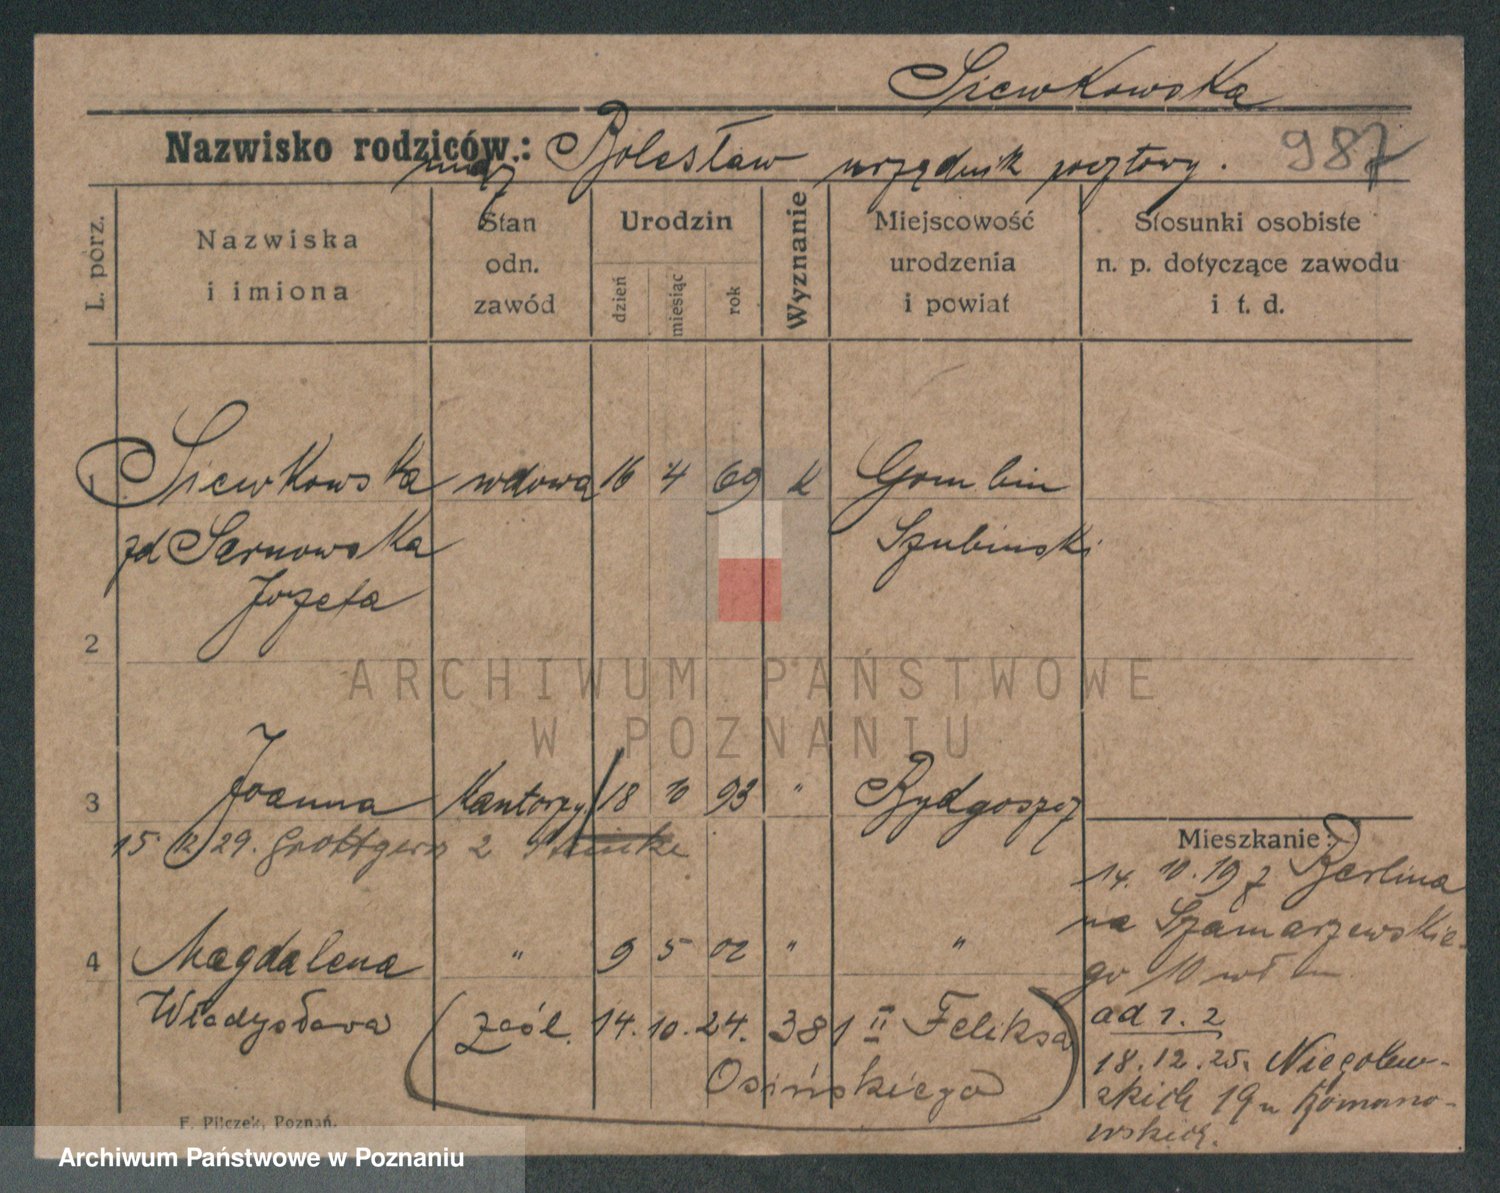 Siewkowska
Nazwisko rodziców: Bolesław urzędnik pocztowy. 987
mąż
L. porz.
Nazwiska i imiona
Stan odn. zawód
Urodzin
dzień
miesiąc
rok
Wyznanie
Miejscowość urodzenia i powiat
Stosunki osobiste n. p. dotyczące zawodu i t. d.
1 Siewkowska wdowa 16 4 69 k Gombin
zd Sarnowska Szubinski
Józefa
2
3 Joanna Kantorzy. 18 10 93 " Bydgoszcz
15 12 29. Grottgera 2
Mieszkanie:
14. 10. 19 z Berlina
na Szamarzewskie-
go 10
4 Magdalena " 9 5 02 " "
Władysława (zaśl. 14. 10. 24. 381 II Feliksa
Osińskiego)
ad 1. 2
18. 12. 25. Niegolew-
skich 19 u Romano-
wskich.
F. Pilczek, Poznań.
ARCHIWUM PAŃSTWOWE
W POZNANIU
Archiwum Państwowe w Poznaniu